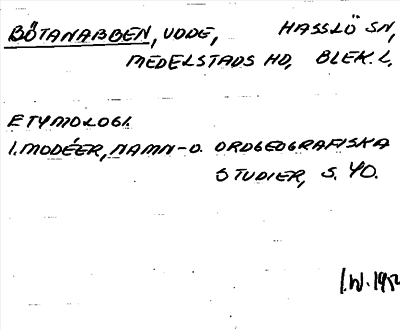 BÖTANABBEN, UDDE, HASSLÖ SN,
MEDELSTADS HD, BLEK. L.
ETYMOLOGI.
I. MODÉER, NAMN- O. ORDGEOGRAFISKA
STUDIER, S. 40.
I.W.